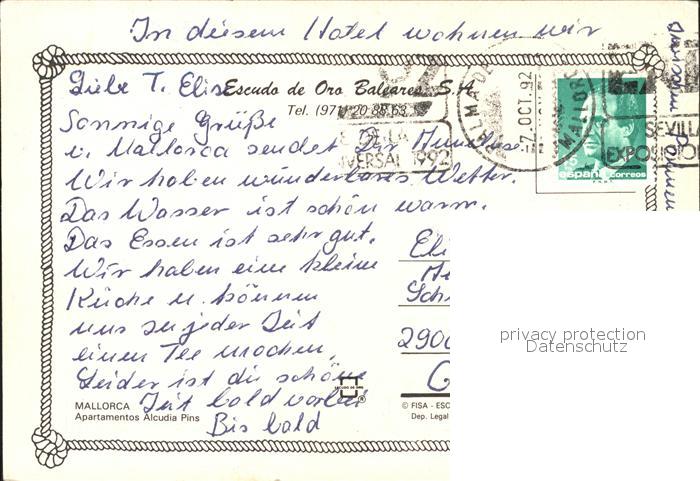 In diesem Hotel wohnen wir
Liebe T. Elis
Escudo de Oro Baleares S.A.
Tel. (971) 20 88 63
Sonnige Grüße
v. Mallorca sendet Dir
Wir haben wunderbares Wetter.
Das Wasser ist schön warm.
Das Essen ist sehr gut.
Wir haben eine kleine
Küche u. können
uns zu jeder Zeit
einen Tee machen.
Leider ist die schöne
Zeit bald vorbei
Bis bald
MALLORCA
Apartamentos Alcudia Pins
© FISA - ESC
Dep. Legal
PALMA DE MALLORCA
7 OCT. 92
VERSAL 1992
SEVILLA
EXPOSICION
españa correos
Eli
Sch
290
privacy protection
Datenschutz